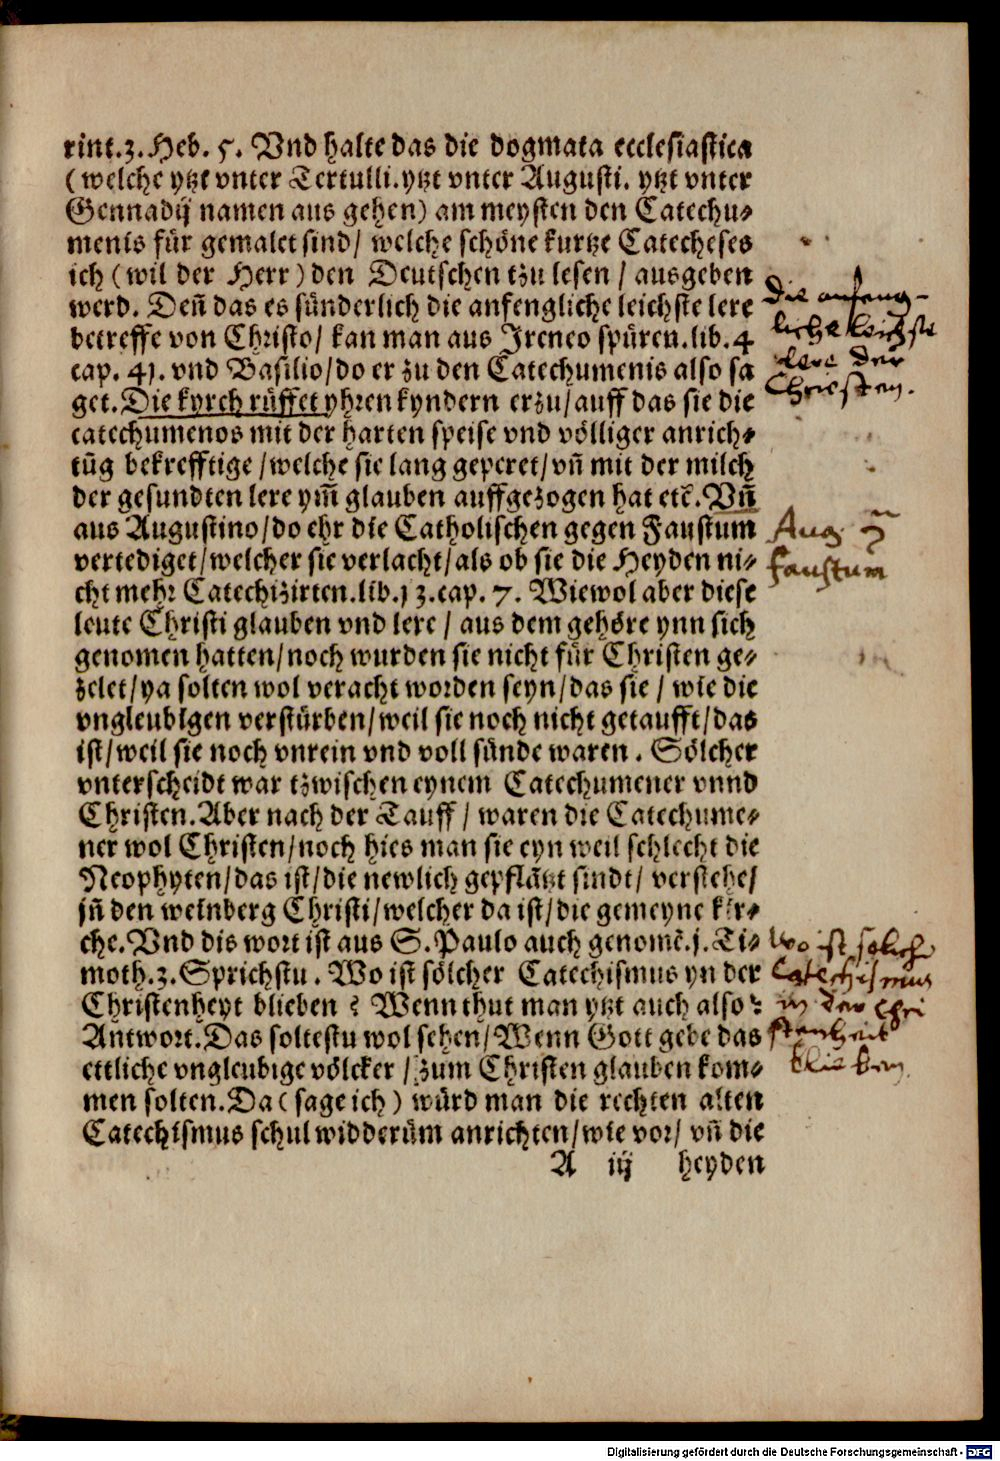 rint.3. Heb. 5. Vnd halte das die dogmata ecclesiastica
(welche ytzt vnter Tertulli. ytzt vnter Augusti. ytzt vnter
Gennadij namen aus gehen) am meysten den Catechu-
menis für gemalet sind/ welche schöne kurtze Catecheses
ich (wil der Herr) den Deutschen tzu lesen / ausgeben
werd. Deñ das es sünderlich die anfengliche leichste lere
betreffe von Christo/ kan man aus Ireneo spüren. lib. 4
cap. 41. vnd Basilio/ do er zu den Catechumenis also sa
get. Die kyrch rüffet yhren kyndern erzu/ auff das sie die
catechumenos mit der harten speise vnd völliger anrich-
tũg bekrefftige /welche sie lang geperet/ vñ mit der milch
der gesundten lere ym̃ glauben auffgezogen hat etc̃. Vñ
aus Augustino/ do ehr die Catholischen gegen Faustum
vertediget/ welcher sie verlacht/ als ob sie die Heyden ni-
cht mehr Catechizirten. lib. 13. cap. 7. Wiewol aber diese
leute Christi glauben vnd lere / aus dem gehöre ynn sich
genomen hatten/ noch wurden sie nicht für Christen ge-
zelet/ ya solten wol veracht worden seyn/ das sie / wie die
vngleubigen verstürben/ weil sie noch nicht getaufft/ das
ist/ weil sie noch vnrein vnd voll sünde waren. Sölcher
vnterscheidt war tzwischen eynem Catechumener vnnd
Christen. Aber nach der Tauff / waren die Catechume-
ner wol Christen/ noch hies man sie eyn weil schlecht die
Neophyten/ das ist/ die newlich gepflãtzt sindt/ verstehe/
jñ den weinberg Christi/ welcher da ist/ die gemeyne kir-
che. Vnd dis wort ist aus S. Paulo auch genomẽ. j. Ti-
moth. 3. Sprichstu. Wo ist sölcher Catechismus yn der
Christenheyt blieben? Wenn thut man ytzt auch also?
Antwort. Das soltestu wol sehen/ Wenn Gott gebe das
ettliche vngleubige völcker / zum Christen glauben kom-
men solten. Da (sage ich) würd man die rechten alten
Catechismus schul widderüm anrichten/ wie vor/ vñ die
A iij heyden
Die anfeng-
liche leichste
lere der
Christen.
Aug
Faustum
Wo ist solcher
Catechismus
in der Chri
stenheit
blieben.
Digitalisierung gefördert durch die Deutsche Forschungsgemeinschaft - DFG